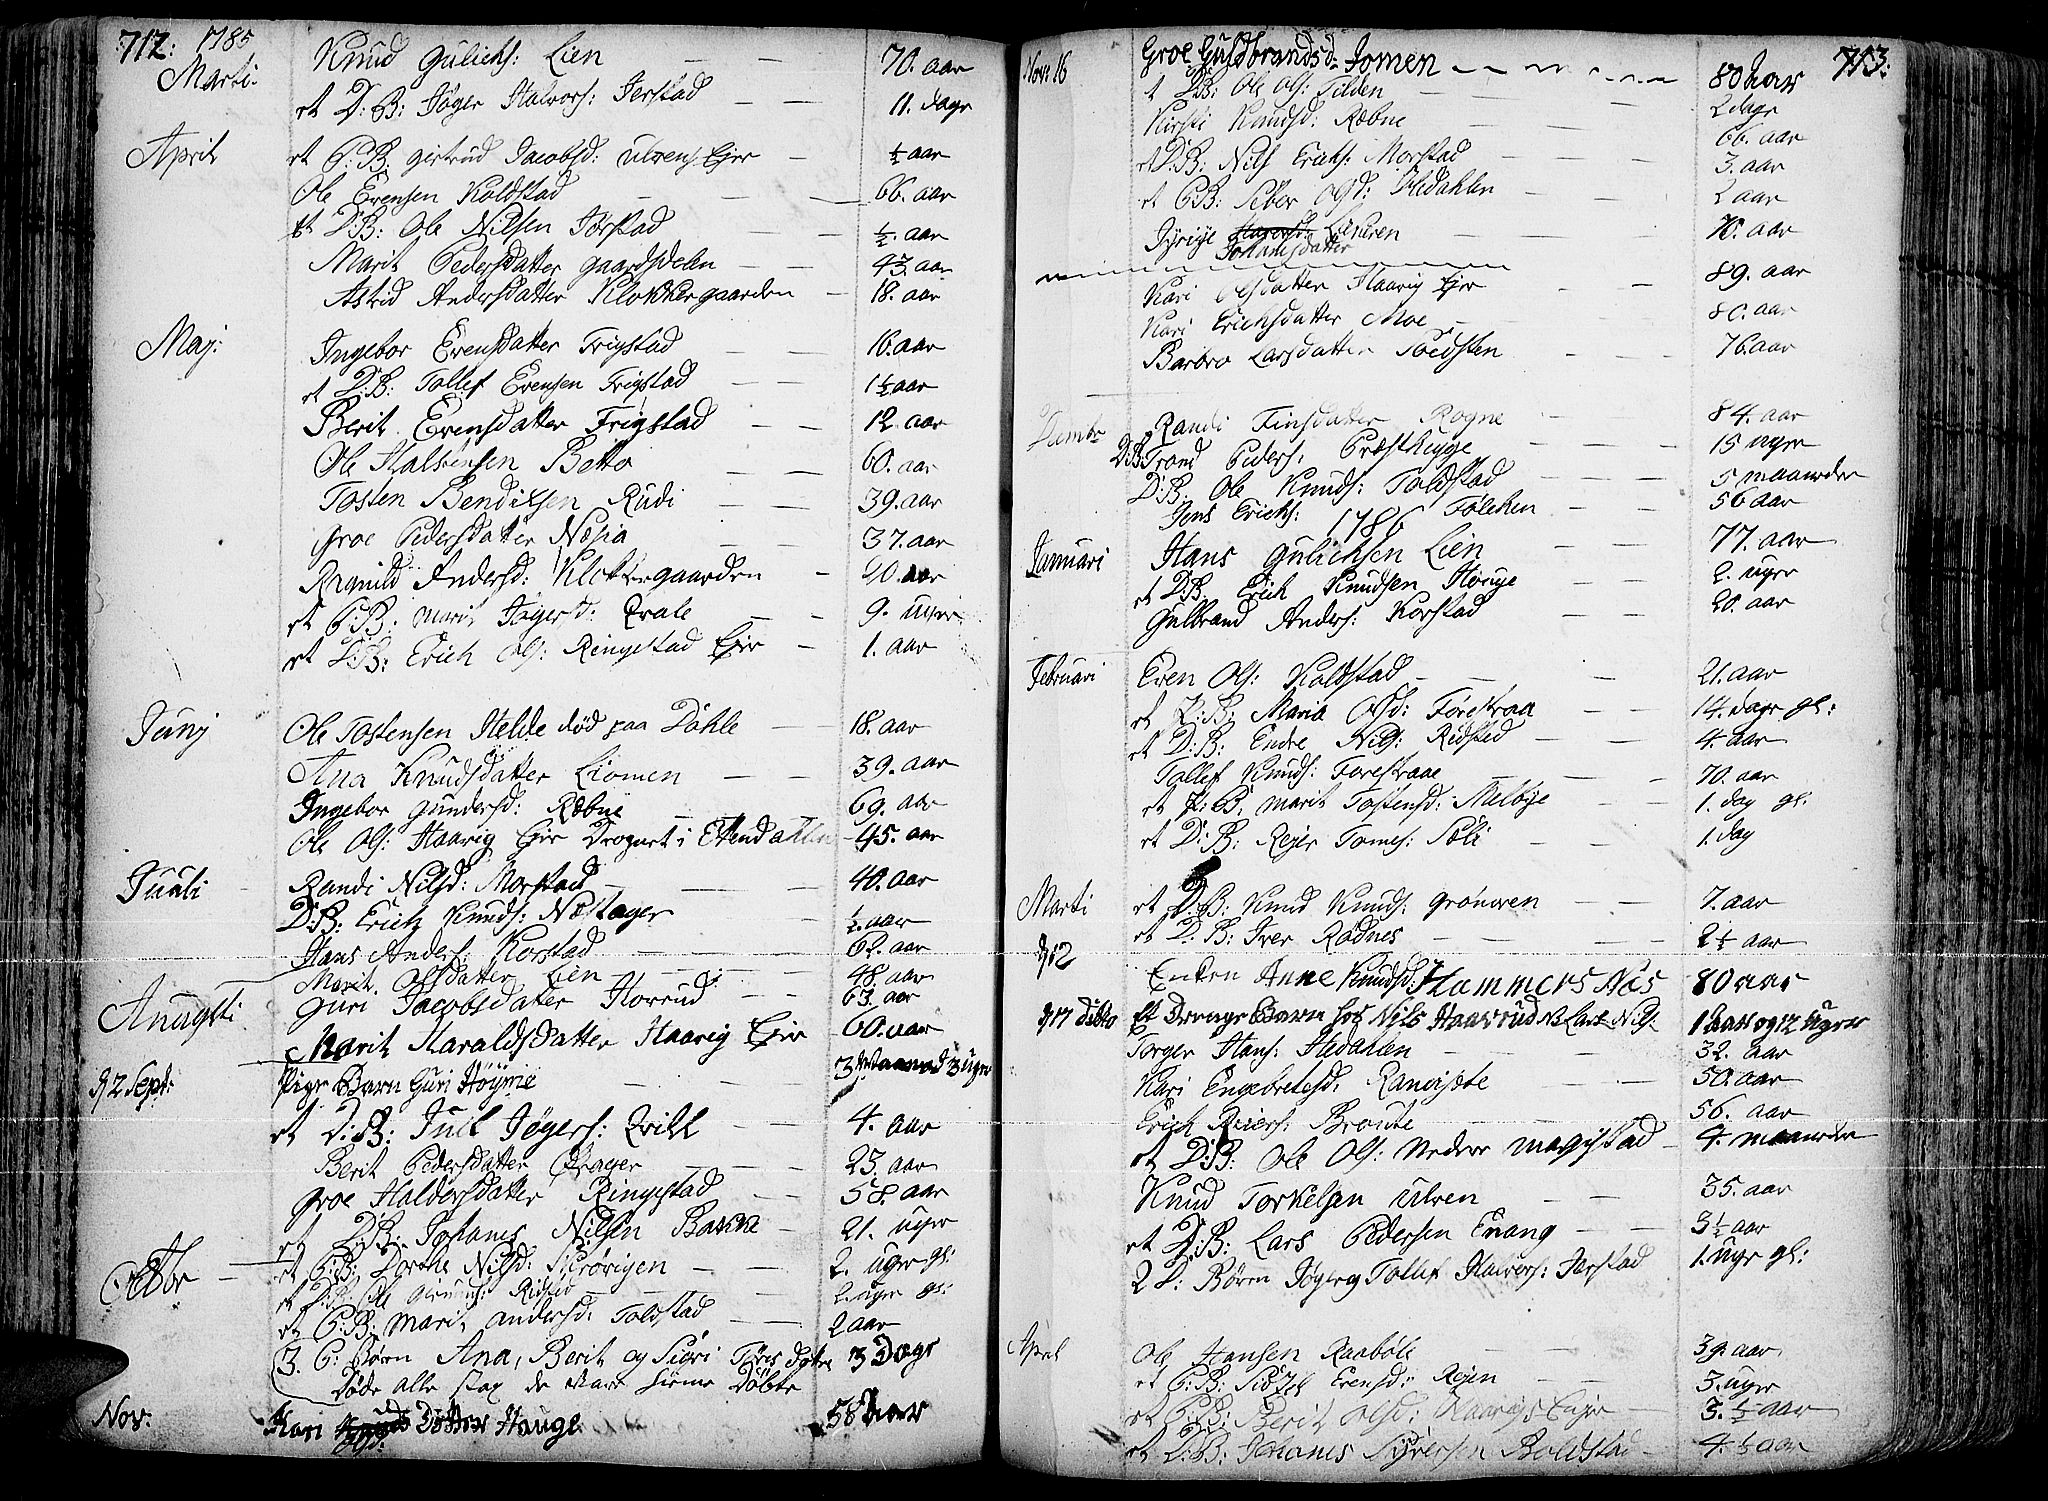 712: 1785
Marti. Knud Gulichs: Lien — — 70. aar
et D: B: Jøger Halvors: Jerstad — — 11. dage
April et P: B: Girtrud Jacobsd: Ulvens Eier — ½ aar
Ole Evensen Koldstad — — 66. aar
et D:B: Ole Nilsen Jørstad — — ½. aar
Marit Pedersdatter Gaardsdelen — — 43. aar
Astrid Andersdatter Klokkergaarden — 18. aar
Maj: Ingebor Evensdatter Frigstad — — 16. aar
et D:B: Tollef Evensen Frigstad — — 1½ aar
Berit Evensdatter Frigstad — — 12. aar
Ole Halstensen Betto — — 60. aar
Tosten Bendixsen Rudi — — 39. aar
Groe Pedersdatter Nøsia — — 37. aar
Ragnild Andersd: Klokkergaarden — 20. aar
et P:B. Marit Jøgersd: Qvale — — 9. uger
et D:B: Erich Ols: Ringestad Eier — 1. aar
Junj Ole Tostensen Helde død paa Dahle — 18. aar
Ana Knudsdatter Liomen — — 39. aar
Ingebor Gundersd: Ræbne — — 69. aar
Ole Ols: Haarig Eier Drognet i Etnedahlen 45. aar
Juuli Randi Nilsd: Morstad — — 40. aar
D:B: Erich Knuds: Nøstager — — ½. aar
Hans Anders: Korstad — — 62. aar
Marit Olsdatter Lien — — 48. aar
Augusti Guri Jacobsdatter Horrud — — 63. aar
Marit Haraldsdatter Haarig Eier 60. aar
d 2 Sept: Pige Barn Guri Høyne — — 3 Maaned 3 uger
et D:B: Juul Jøgers: Qvihl — 4. aar
Berit Pedersdatter Prager — — 23. aar
Groe Haldorsdatter Ringestad — — 58. aar
et D:B: Johanes Nilsen Bakke — 21. uger
Octbr — et P:B: Dorthe Nilsd: — — 2. uger gl:
et D:B: Ole Ridstad — — 2. uger gl:
et P:B: Marit Andersd: Toldstad — — 2 aar
3. P: Børn Ana, Berit og Sigri Tøres døtre 3 Dage
Døde alle strax de vare hieme Døbte
Nov: Kari Olsd: Dotter Hauge 58 aar
713:
Nov: 16 Groe Guldbrandsd: Jomen — — 80 aar
et D:B: Ole Ols: Tilden — — 2 dage
Kirsti Knudsd: Ræbne — — 66. aar
et D:B: Nils Erichs: Morstad — — 3. aar
et P:B: Siber Olsd: Hedahlen — 2 aar
Gyriye Johannsdatter — — 70. aar
Kari Olsdatter Haarig Eier — — 89. aar
Kari Erichsdatter Moe — — 80. aar
Barbro Larsdatter — — 76. aar
Randi Finsdatter Rogne — 84. aar
D:B: Trond Peders: Præsthegge — 15 uger
D:B. Ole Knuds: Toldstad — — 5 maaneder
Jens Erichs: Følehen — — 56 aar
1786
Januari Hans Gulichsen Lien — — 77. aar
et D:B: Erich Knudsen Hauge — — 2. uger
Gulbrand Anders: Korstad — — 20. aar
Februari Even Ols: Koldstad — — 21. aar
et P:B: Maria Olsd: Førestraa — — 14. dage gl:
et D:B: Endre Nils: Ridsted — — 4. aar
Tollef Knuds: Forestraae — — 70. aar
et P:B: Marit Tostensd: Melbye — — 1. dag gl.
et D:B: Reier Tomes: Søli — — 1. dag
Marti et D:B: Knud Knuds: Grønoren — — 7. aar
et D:B: Iver Rødnes — — 2½ aar
d 12 Enken Anne Knudsd: Hammers Næs 80 aar
d 17 ditto et Drenge Barn hos Nils Haavrud NB Lars Nils: 1 aar og 12 Uger
Torger Hans: Hedahlen — — 32. aar
Kari Engebretsd: — — 50. aar
Erich Reiers: Broute — — 56. aar
et D:B: Ole Ols: Nedere Magistad — 4. maaneder
Knud Torkelsen Ulven — — 35. aar
et D:B: Lars Pedersen Enang — — 3½ aar
2 D: Børn Jøger og Tollef Halvors: Jerstad 1. uge gl:
April Ole Hansen Raabøle — — 39. aar
et P:B: Evensd: Reien — — 3. uger
et P:B: Berit Olsd: Haarigs Eier — 3. ½ aar
et D:B: Johanes Syversen Boldstad — 4. ½ aar